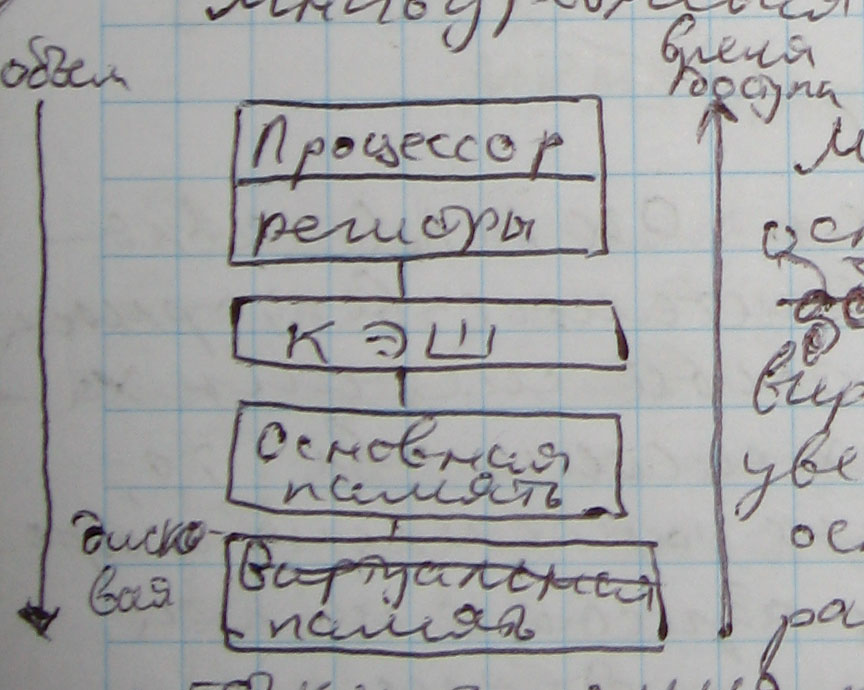 объем
время
доступа
Процессор
регистры
КЭШ
Основная
память
диско-
вая
Виртуальная
память